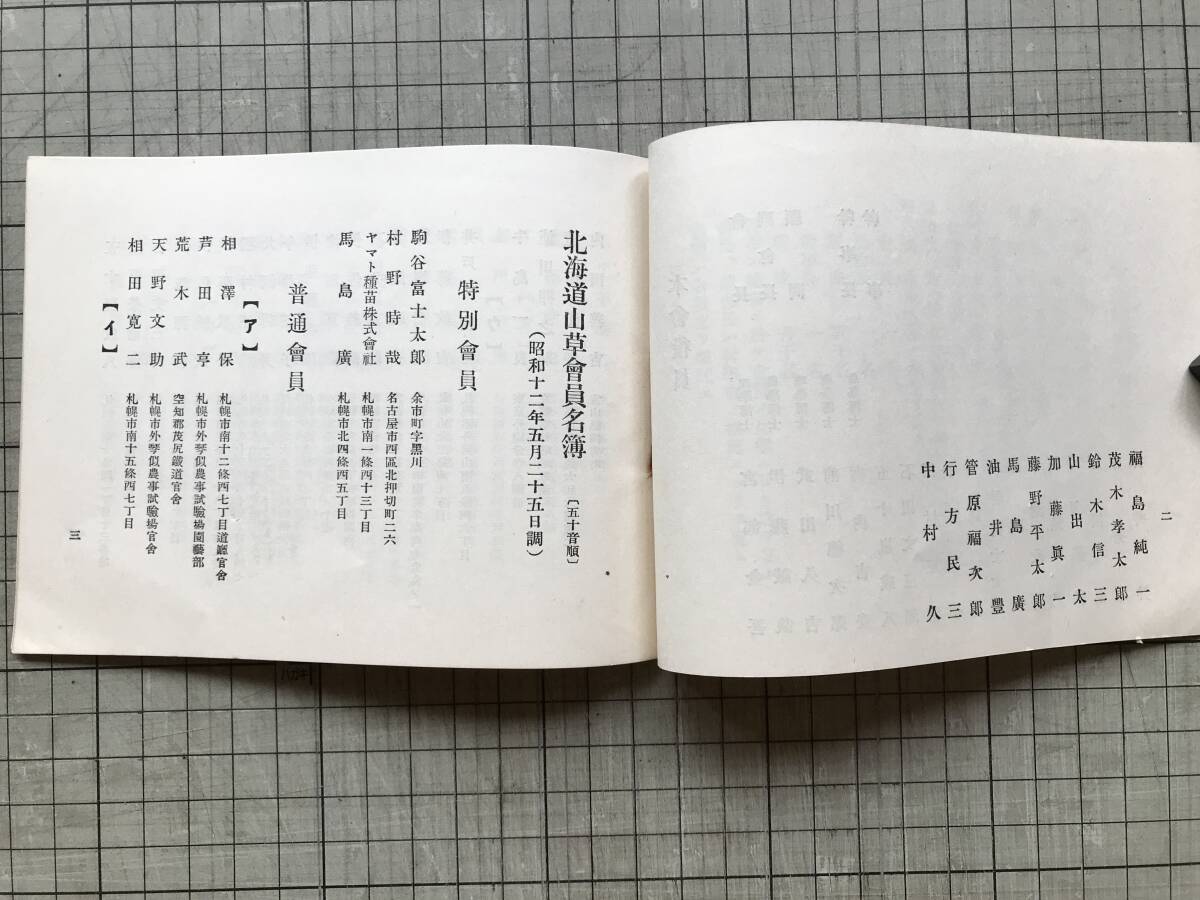 二
福島純一
茂木孝太郎
鈴木信三
山出太
加藤眞一
藤野平太郎
馬島廣
油井豐
管原福次郎
行方民三
中村久
北海道山草會員名簿
〔五十音順〕
(昭和十二年五月二十五日調)
特別會員
駒谷富士太郎 余市町字黑川
村野時哉 名古屋市西區北押切町二六
ヤマト種苗株式會社 札幌市南一條西十三丁目
馬島廣 札幌市北四條西五丁目
普通會員
【ア】
相澤保 札幌市南十二條西七丁目道廳官舍
芦田亨 札幌市外琴似農事試驗場園藝部
荒木武 空知郡茂尻鐵道官舍
天野文助 札幌市外琴似農事試驗場官舍
相田寛二 札幌市南十五條西七丁目
【イ】
三